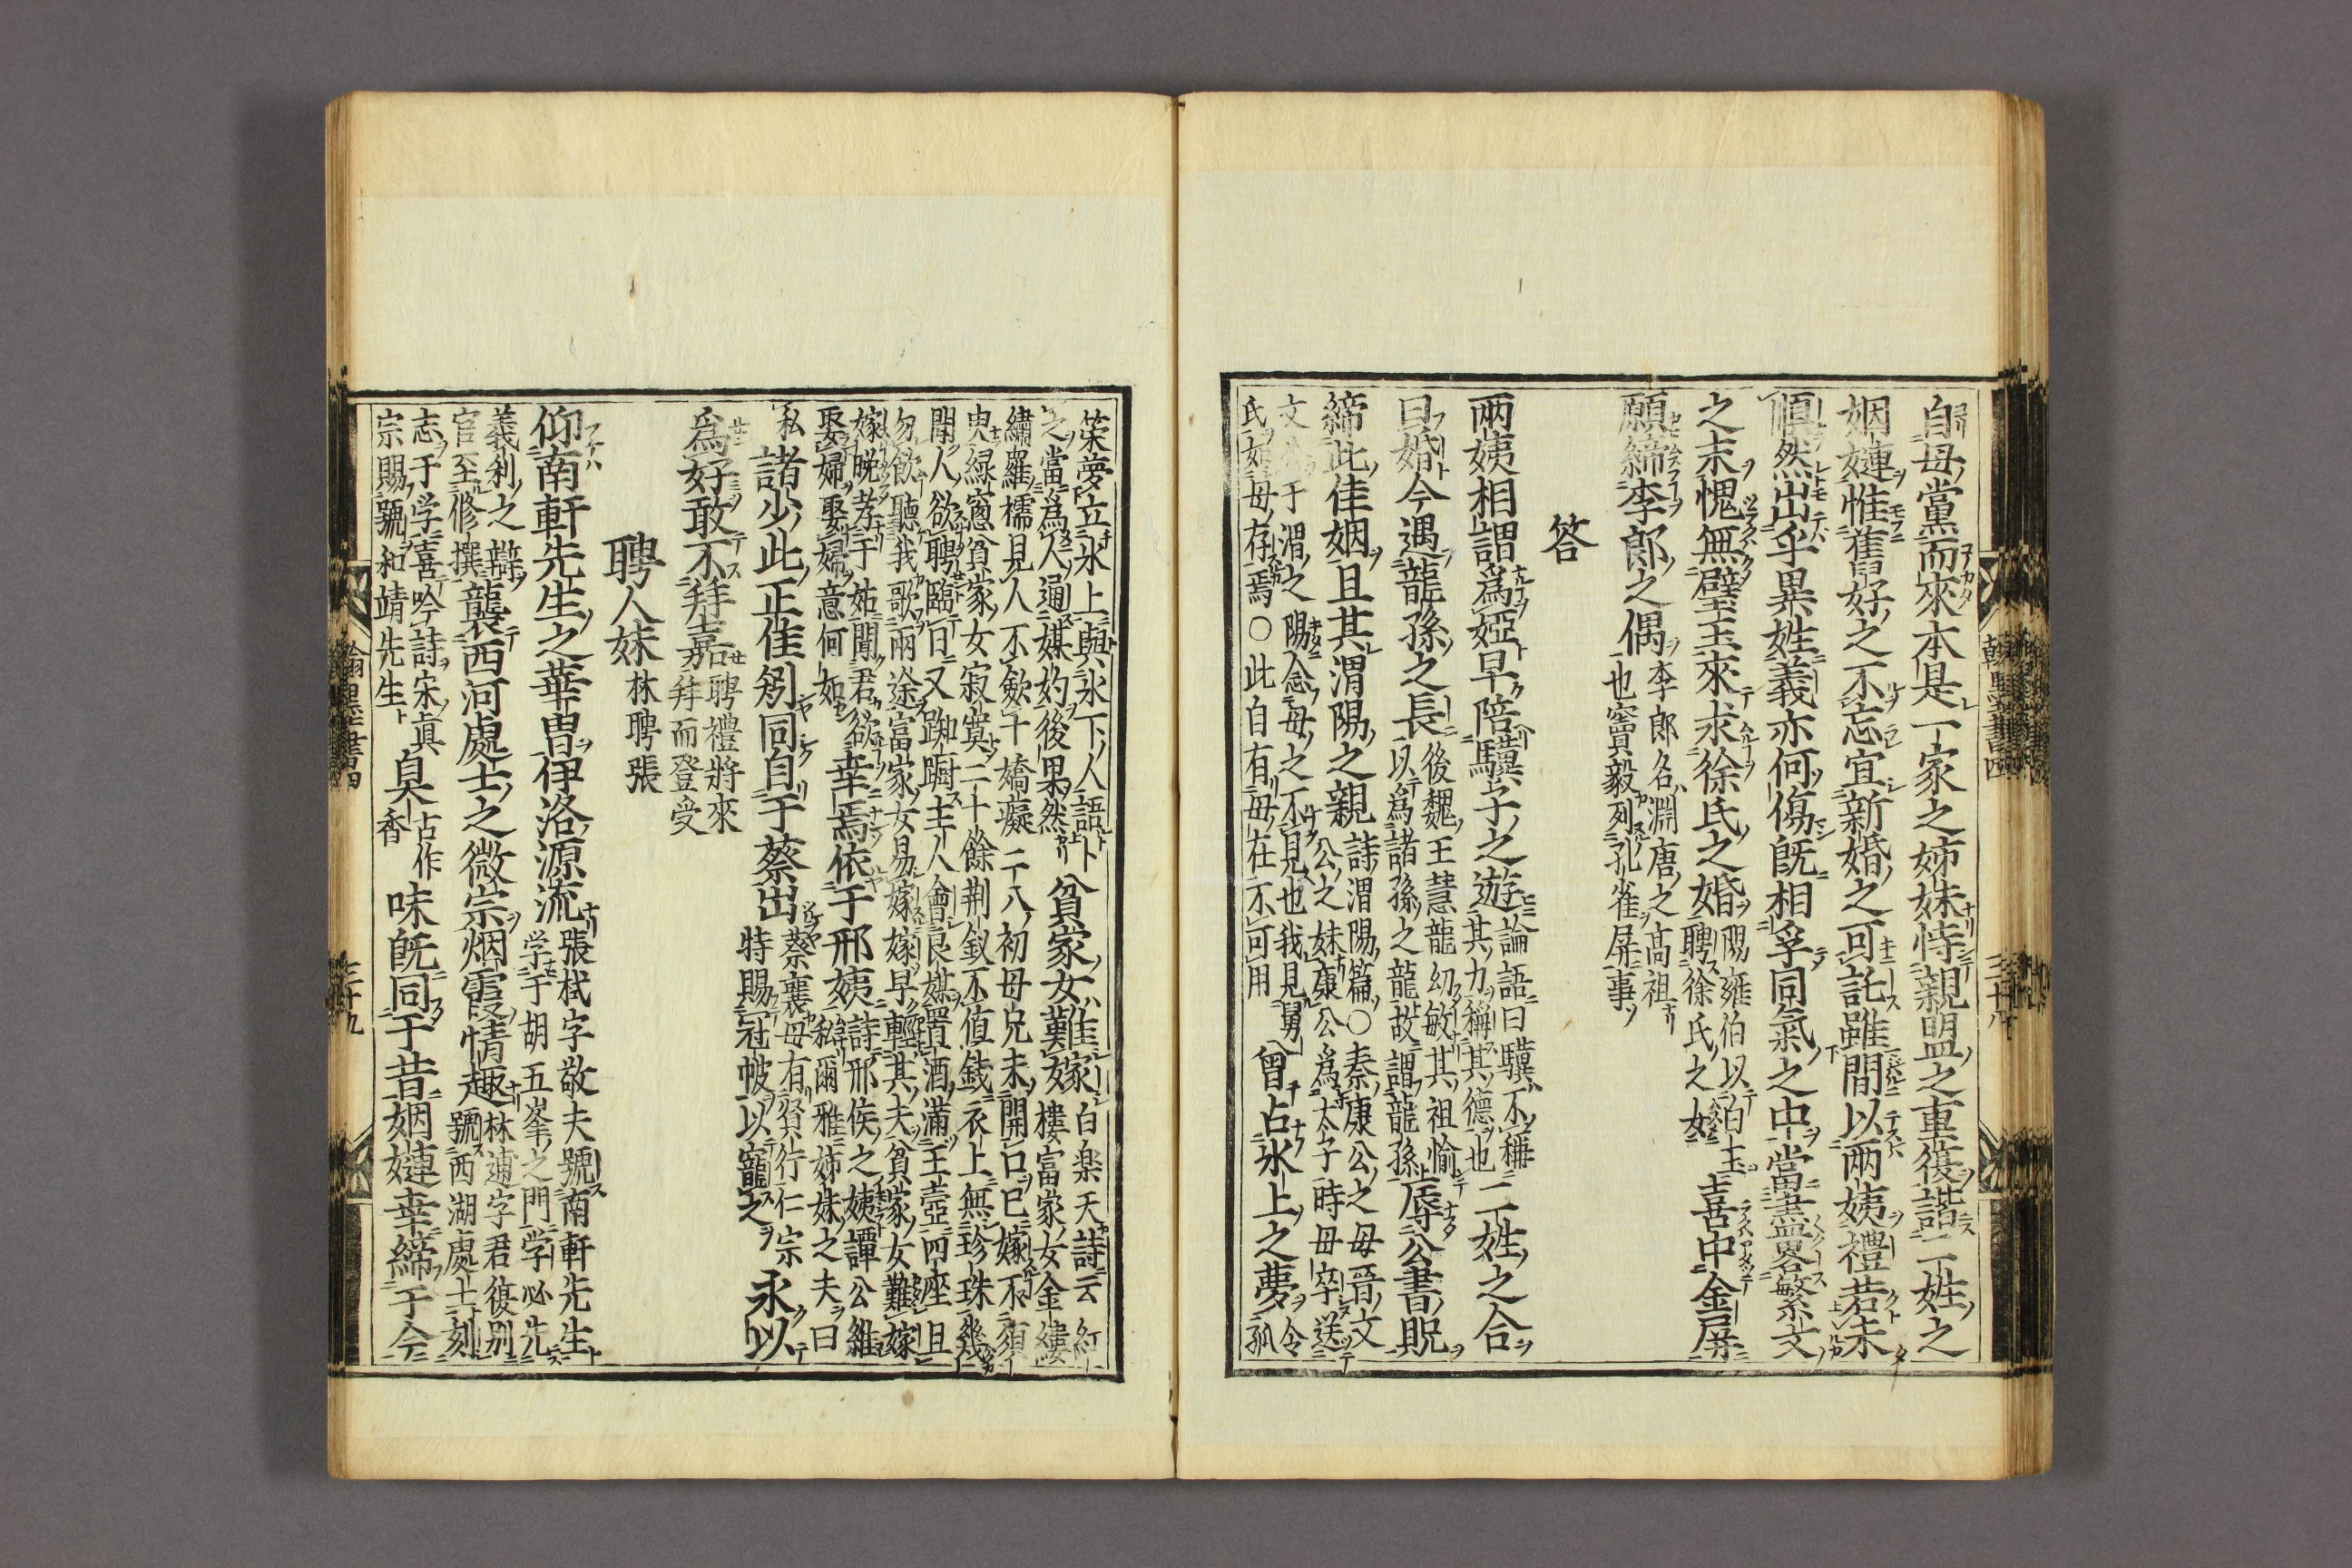 自母黨而來本是一家之姉妹恃親盟之重復諧二姓之
姻嫤惟舊好之不忘宜新婚之可託雖間以兩姨禮若未
順然出乎異姓義亦何傷旣相孚同氣之中當盡畧繁文
之末愧無璧玉來求徐氏之婚陽雍伯以白玉聘徐氏之女喜中金屏
願締李郎之偶李郎名淵唐之高祖也竇毅列孔雀屏事
答
兩姨相謂爲婭早陪驥子之遊論語曰驥不稱其力稱其德也二姓之合
曰婚今遇龍孫之長後魏王慧龍幼敏其祖愉以爲諸孫之龍故謂龍孫辱公書貺
締此佳姻且其渭陽之親詩渭陽篇○秦康公之母晉文公之妹康公爲太子時母卒送
文公于渭之陽念母之不見也我見舅氏如母存焉○此自有母在不可用曾占氷上之夢令狐
策夢立氷上與氷下人語卜之當爲人通媒妁後果然貧家女難嫁白楽天詩云紅樓富家女金縷
繡羅襦見人不斂手嬌癡二八初母兄未開口已嫁不須臾綠窻貧家女寂寞二十餘荆釵不值錢衣上無珍珠幾
聞人欲聘臨日又踟蹰主人會良媒置酒滿玉壺四座且勿飲聽我歌兩途富家女易嫁嫁早輕其夫貧家女難嫁
嫁晚孝于姑聞君欲娶婦娶婦意何如幸焉依于邢姨詩邢侯之姨譚公維私爾雅姉妹之夫曰
私諸少此正佳矧同自于蔡出蔡襄母有賢行仁宗特賜冠帔以寵之永以
爲好敢不拜嘉聘禮將來拜而登受
聘人妹林聘張
仰南軒先生之華胄伊洛源流張栻字敬夫號南軒先生学于胡五峯之門学必先
義利之辯官至修撰襲西河處士之微宗烟霞情趣林逋字君復別號西湖處士刻
志于学喜吟詩宋眞宗賜號和靖先生臭香古作味旣同于昔姻嫤幸締于今
翰墨書四
三十八
翰墨書四
三十九